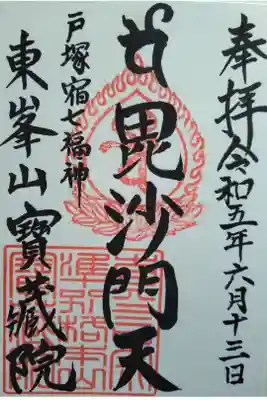 奉拝令和五年六月十三日
毘沙門天
戸塚宿七福神
東峯山寶蔵院